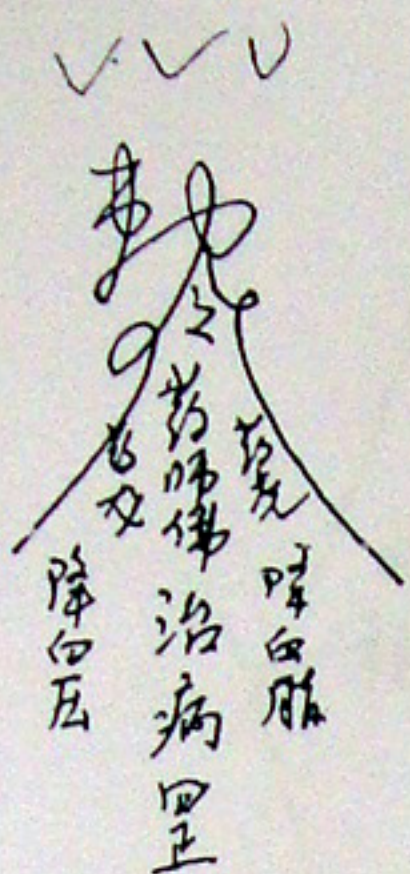 勅令
药师佛治病罡
降血压
降血脂